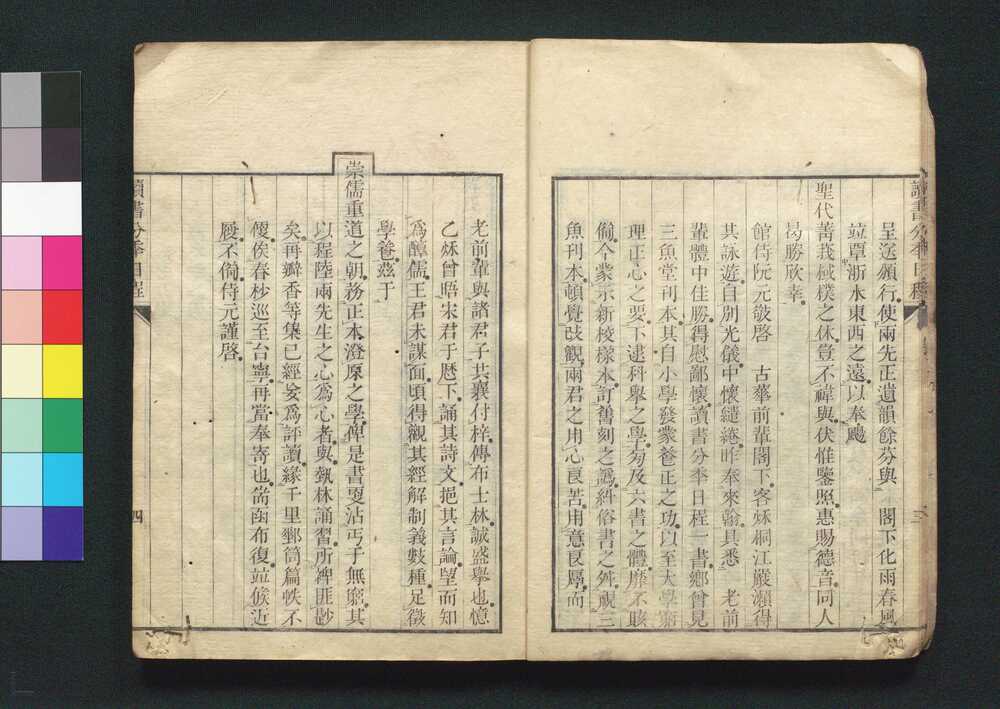 讀書分秊日程
呈送願行使兩先正遺韻餘芬與　閣下化雨春風
竝覃浙水東西之遠以奉颺
聖代菁莪棫樸之休豈不禕與伏惟鑒照惠賜德音同人
曷勝欣幸
館侍阮元敬啓　古華前輩閣下客秌桐江嚴瀨得
其詠遊自別光儀中懷繾綣昨奉來翰具悉　老前
輩體中佳勝得慰鄙懷讀書分秊日程一書鄉曾見
三魚堂刊本其自小學發蒙養正之功以至大學窮
理正心之要下逮科舉之學匆及六書之體靡不賅
備今蒙示新校樣本訂舊刻之譌糾俗書之舛視三
魚刊本頓覺改觀兩君之用心良苦用意良厚而
三
老前輩與諸君子共襄付梓傳布士林誠盛擧也憶
乙秌曾晤宋君于歷下誦其詩文挹其言論望而知
爲醇儒王君未謀面頃得觀其經解制義數種足徵
學養茲于
崇儒重道之朝務正本澄原之學俾是書夏沾丐于無窮其
以程陸兩先生之心爲心者與埶林誦習所裨匪尟
矣再瓣香等集已經妥爲評讀緣千里郵筒篇帙不
便俟春杪巡至台寧再當奉寄也耑函布復竝候近
履不備侍元謹啓
讀書分秊日程
四